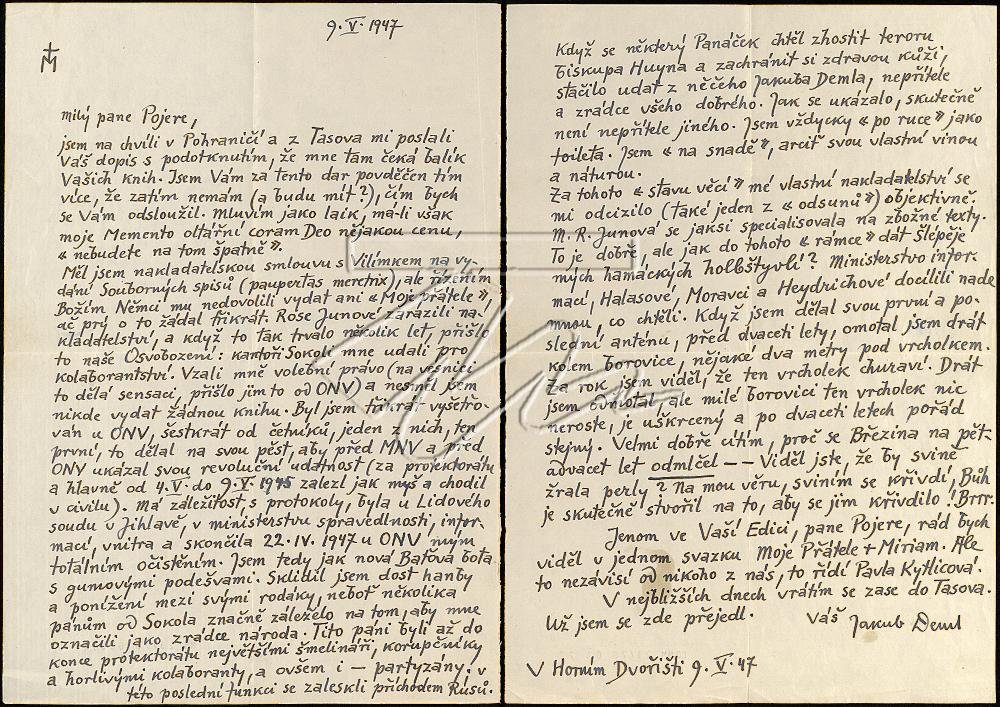 9.V.1947
milý pane Pojere,
jsem na chvíli v Pohraničí a z Tasova mi poslali
Váš dopis s podotknutím, že mne tam čeká balík
Vašich knih. Jsem Vám za tento dar povděčen tím
více, že zatím nemám (a budu mít?), čím bych
se Vám odsloužil. Mluvím jako laik, má-li však
moje Memento oltářní coram Deo nějakou cenu,
« nebudete na tom špatně ».
Měl jsem nakladatelskou smlouvu s Vilímkem na vy-
dání Souborných spisů (paupertas meretrix), ale řízením
Božím Němci mu nedovolili vydat ani « Moje přátele »,
ač prý o to žádal třikrát. Rose Junové zarazili na-
kladatelství, a když to tak trvalo několik let, přišlo
to naše Osvobození: kantoři Sokoli mne udali pro
kolaborantství. Vzali mně volební právo (na vesnici
to dělá sensaci, přišlo jim to od ONV) a nesměl jsem
nikde vydat žádnou knihu. Byl jsem třikrát vyšetřo-
ván u ONV, šestkrát od četníků, jeden z nich, ten
první, to dělal na svou pěst, aby před MNV a před
ONV ukázal svou revoluční udatnost (za protektorátu
a hlavně od 4.V. do 9.V.1945 zalezl jak myš a chodil
v civilu). Má záležitost, s protokoly, byla u Lidového
soudu v Jihlavě, v ministerstvu spravedlnosti, infor-
mací, vnitra a skončila 22.IV.1947 u ONV mým
totálním očistěním. Jsem tedy jak nová Baťova bota
s gumovými podešvami. Sklidil jsem dost hanby
a ponížení mezi svými rodáky, neboť několika
pánům od Sokola značně záleželo na tom, aby mne
označili jako zrádce národa. Tito páni byli až do
konce protektorátu největšími šmelináři, korupčníky
a horlivými kolaboranty, a ovšem i — partyzány. V
této poslední funkci se zaleskli příchodem Rusů.
Když se některý Panáček chtěl zhostit teroru
biskupa Huyna a zachránit si zdravou kůži,
stačilo udat z něčeho Jakuba Demla, nepřítele
a zrádce všeho dobrého. Jak se ukázalo, skutečně
není nepřítele jiného. Jsem vždycky « po ruce » jako
toileta. Jsem « na snadě », arciť svou vlastní vinou
a náturou.
Za tohoto « stavu věcí » mé vlastní nakladatelství se
mi odcizilo (také jeden z « odsunů ») objektivně.
M.R. Junová se jaksi specialisovala na zbožné texty.
To je dobré, ale jak do tohoto « rámce » dát Šlépěje
mých hamáckých holbštyblí? Ministerstvo infor-
mací, Halasové, Moravci a Heydrichové docílili nade
mnou, co chtěli. Když jsem dělal svou první a po-
slední anténu, před dvaceti lety, omotal jsem drát
kolem borovice, nějaké dva metry pod vrcholkem.
Za rok jsem viděl, že ten vrcholek churaví. Drát
jsem odmotal, ale milé borovici ten vrcholek nic
neroste, je uškrcený a po dvaceti letech pořád
stejný. Velmi dobře cítím, proč se Březina na pět-
advacet let odmlčel — — Viděl jste, že by svině
žrala perly? Na mou věru, sviním se křivdí, Bůh
je skutečně stvořil na to, aby se jim křivdilo! Brrr.
Jenom ve Vaší Edici, pane Pojere, rád bych
viděl v jednom svazku Moje Přátele + Miriam. Ale
to nezávisí od nikoho z nás, to řídí Pavla Kytlicová.
V nejbližších dnech vrátím se zase do Tasova.
Už jsem se zde přejedl. Váš Jakub Deml
V Horním Dvořišti 9.V.47